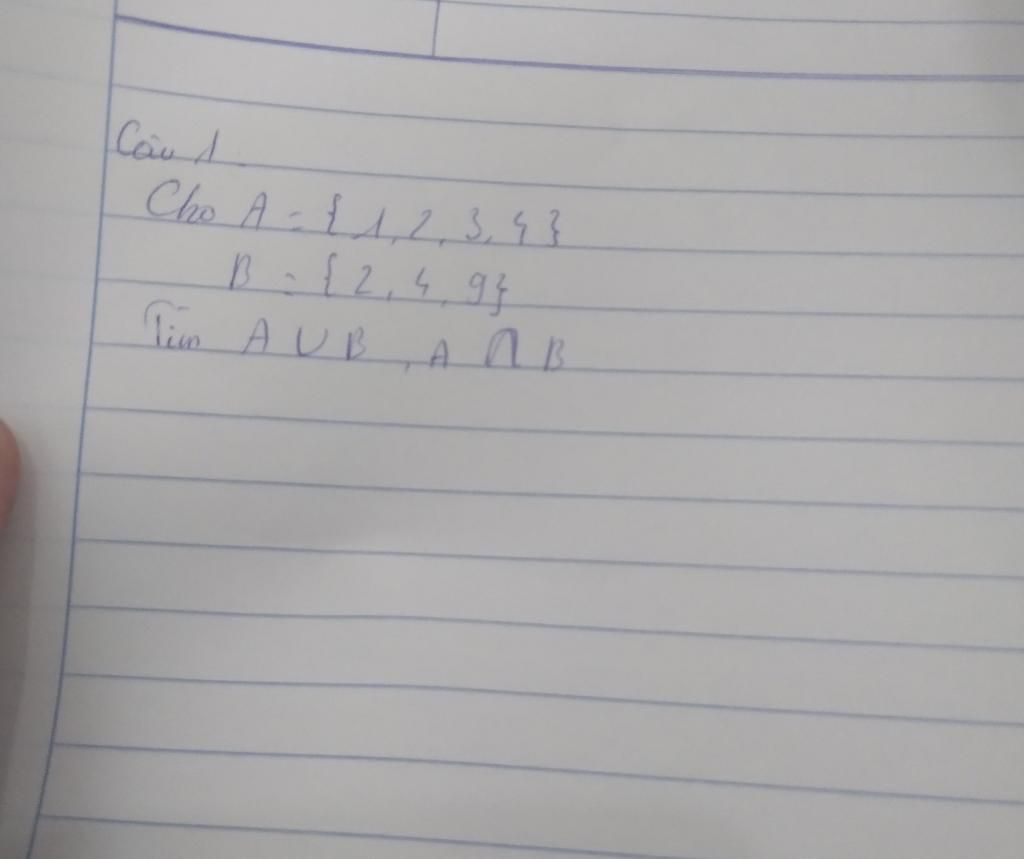 Câu 1
Cho A = {1, 2, 3, 4}
B = {2, 4, 9}
Tìm A ∪ B, A ∩ B